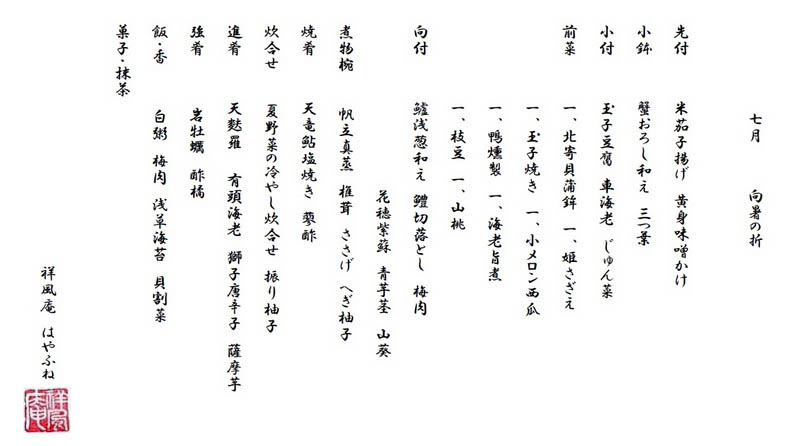 七月 向暑の折
先付 米茄子揚げ 黄身味噌かけ
小鉢 蟹おろし和え 三つ葉
小付 玉子豆腐 車海老 じゅん菜
前菜 一、北寄貝蒲鉾 一、姫さざえ
一、玉子焼き 一、小メロン西瓜
一、鴨燻製 一、海老旨煮
一、枝豆 一、山桃
向付 鱸浅葱和え 鱧切落とし 梅肉
花穂紫蘇 青芋茎 山葵
煮物椀 帆立真蒸 椎茸 ささげ へぎ柚子
焼肴 天竜鮎塩焼き 蓼酢
炊合せ 夏野菜の冷やし炊合せ 振り柚子
進肴 天麩羅 有頭海老 獅子唐辛子 薩摩芋
強肴 岩牡蠣 酢橘
飯・香 白粥 梅肉 浅草海苔 貝割菜
菓子・抹茶
祥風庵 はやふね
祥風庵